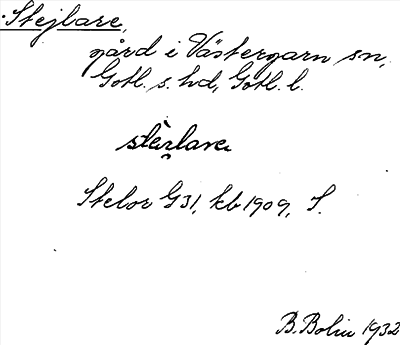 Stejlare,
gård i Västergarn sn,
Gotl. s. hd, Gotl. l.
Stelor G31, kb 1909, S.
B. Bolin 1932